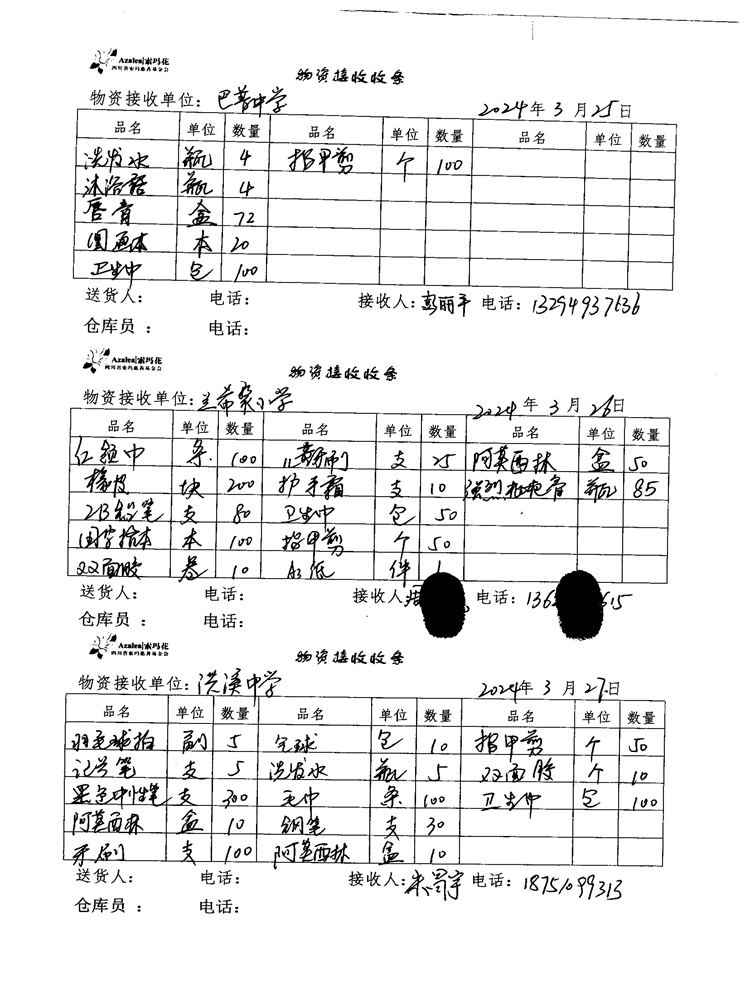 Azalea|索玛花
四川省索玛慈善基金会
物资接收收条
物资接收单位：巴普中学 2024年3月25日
品名 单位 数量 品名 单位 数量 品名 单位 数量
洗发水 瓶 4 指甲剪 个 100
沐浴露 瓶 4
唇膏 盒 72
图画本 本 20
卫生巾 包 100
送货人： 电话： 接收人：彭丽平 电话：13294937636
仓库员： 电话：
Azalea|索玛花
四川省索玛慈善基金会
物资接收收条
物资接收单位： 小学 2024年3月26日
品名 单位 数量 品名 单位 数量 品名 单位 数量
红领巾 条 100 支 25 阿莫西林 盒 50
橡皮 块 200 护手霜 支 10 强烈枇杷膏 瓶 85
2B铅笔 支 80 卫生巾 包 50
本 100 指甲剪 个 50
双面胶 卷 10 A3纸 件 1
送货人： 电话： 接收人 电话：136 615
仓库员： 电话：
Azalea|索玛花
四川省索玛慈善基金会
物资接收收条
物资接收单位：洪溪中学 2024年3月27日
品名 单位 数量 品名 单位 数量 品名 单位 数量
羽毛球拍 副 5 气球 包 10 指甲剪 个 50
记号笔 支 5 洗发水 瓶 5 双面胶 个 10
黑色中性笔 支 300 毛巾 条 100 卫生巾 包 100
阿莫西林 盒 10 钢笔 支 30
牙刷 支 100 阿莫西林 盒 10
送货人： 电话： 接收人： 电话：18751099313
仓库员： 电话：